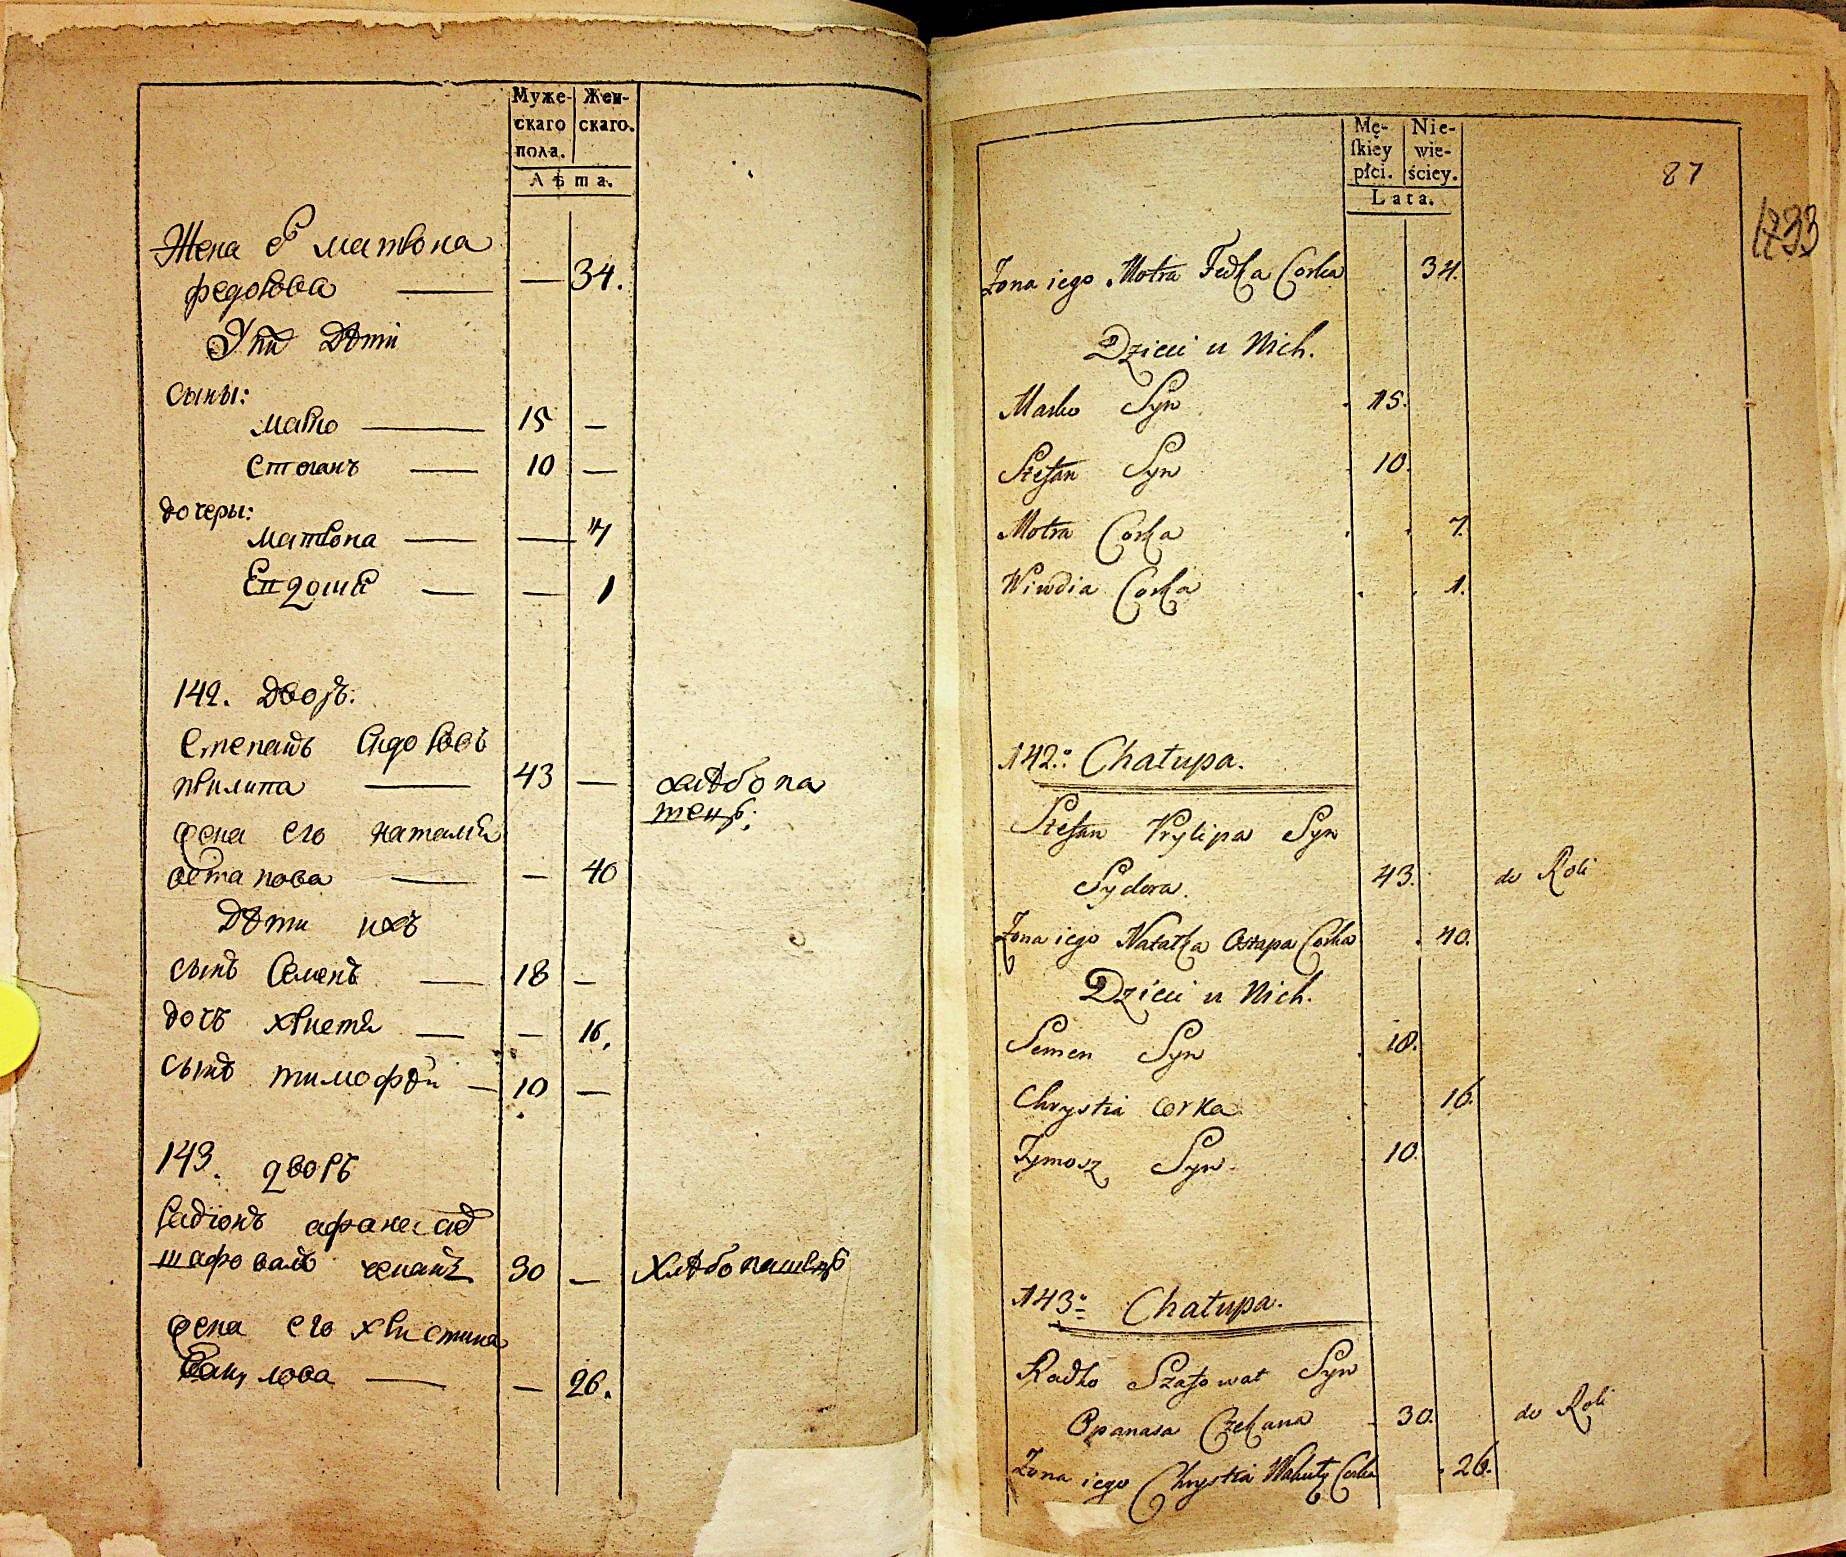 Муже-
скаго
пола.
Жен-
скаго.
Лѣта.
Жена е матрона
федорова — — 34.
дѣти
сыны:
марко — 15 —
стефанъ — 10 —
дочеры:
матрона — — 7
— — 1
142. дворъ.
Степанъ Сидоровъ
прилипа — 43 — хлѣбопа
шецъ.
жена его наталия
остапова — — 40
дѣти ихъ
сынъ Семенъ — 18 —
дочъ христя — — 16.
сынъ тимофѣй — 10 —
143. дворъ
Радіонъ афанасиевъ
шафовалъ чепанъ 30 — хлѣбопашецъ
жена его христина
— — 26.
Mę-
skiey
płci.
Nie-
wie-
ściey.
Lata.
87
1733
Zona iego Motra Fedka Corka 34.
Dzieci u Nich.
Marko Syn 15.
Stefan Syn 10.
Motra Corka 7.
Wiwdia Corka 1.
142.o Chałupa.
Stefan Prylipa Syn
Sydora. 43. do Roli
Zona iego Natałka Ostapa Corka 40.
Dzieci u Nich.
Semen Syn 18.
Chrystia corka 16.
Tymosz Syn 10.
143.o Chałupa.
Radko Szafował Syn
Opanasa Czekana 30. do Roli
Zona iego Chrystia Wakuły Corka 26.